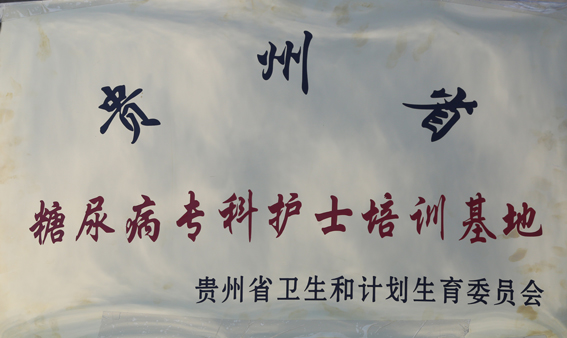 贵州省
糖尿病专科护士培训基地
贵州省卫生和计划生育委员会